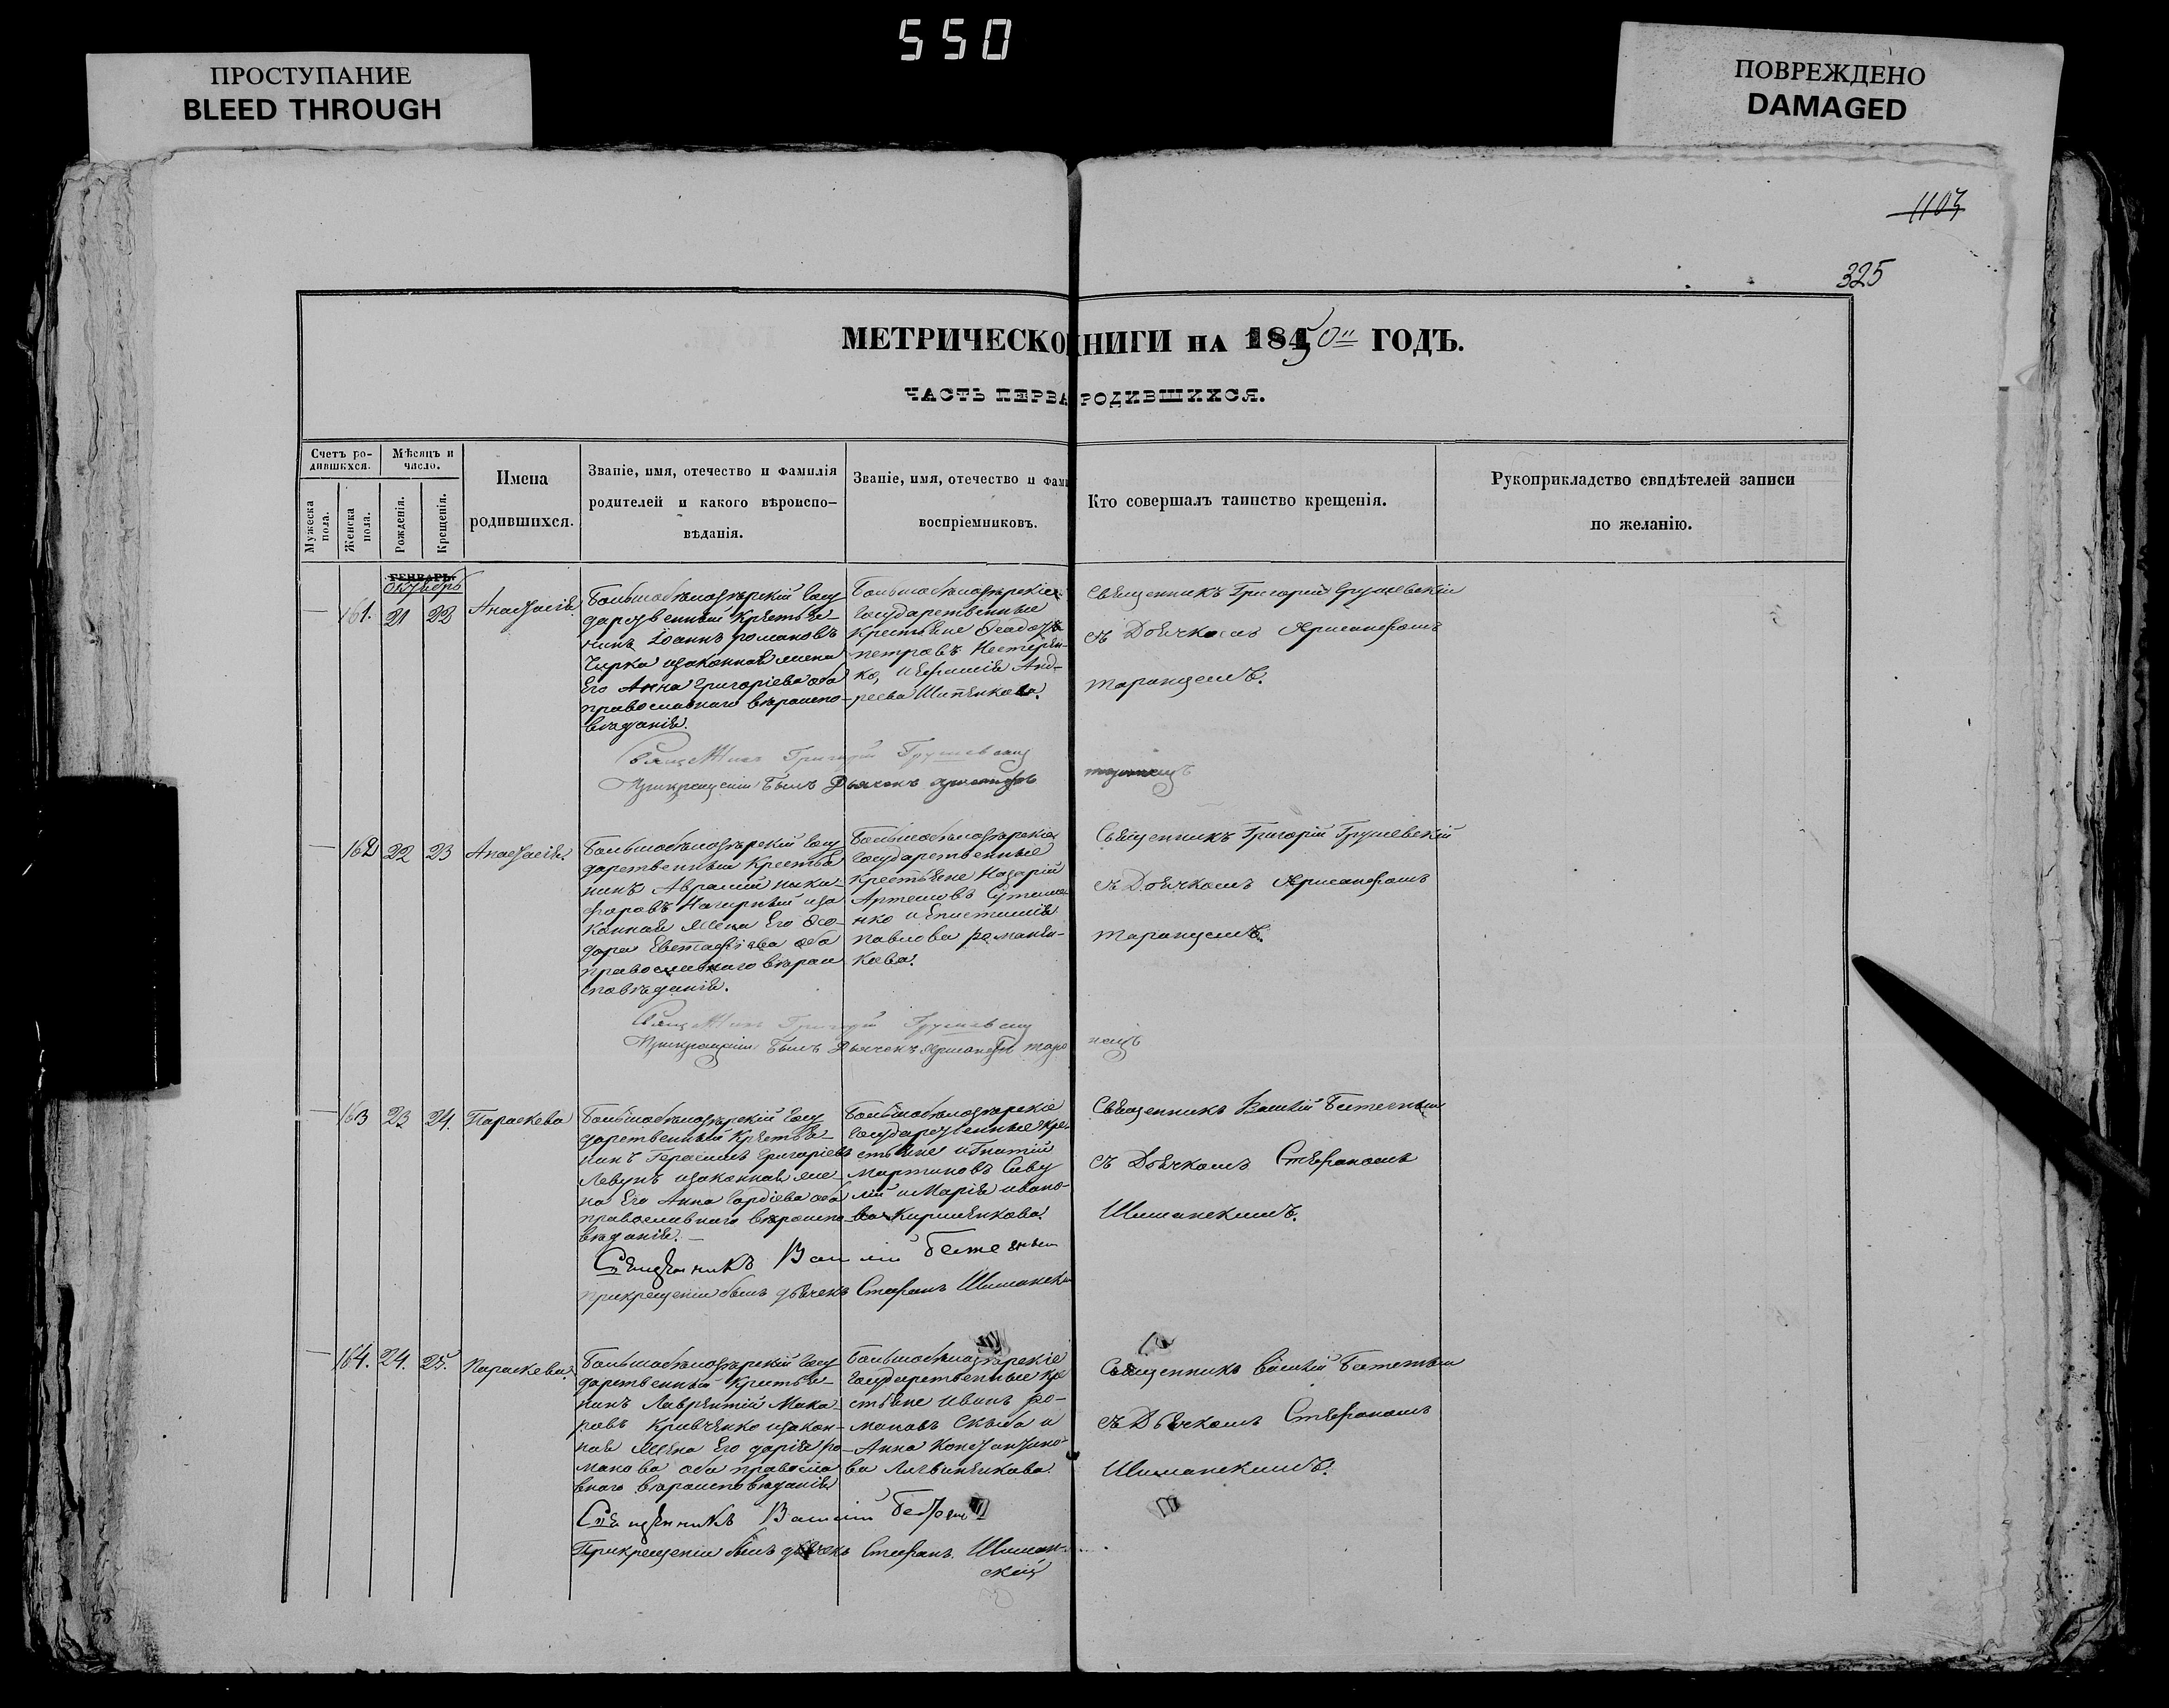 550
ПРОСТУПАНИЕ
BLEED THROUGH
ПОВРЕЖДЕНО
DAMAGED
1107
325
МЕТРИЧЕСКО КНИГИ НА 1850 ГОДЪ.
ЧАСТЬ ПЕРВА РОДИВШИХСЯ.
Счетъ ро-
дившихся.
Мужеска пола.
Женска пола.
Мѣсяцъ и
число.
Рожденія.
Крещенія.
Имена
родившихся.
Званіе, имя, отечество и фамилія
родителей и какого вѣроиспо-
вѣданія.
Званіе, имя, отечество и фам
воспріемниковъ.
Кто совершалъ таинство крещенія.
Рукоприкладство свидѣтелей записи
по желанію.
ГЕНВАРЬ.
Октябрь
161. 21 22 Анастасія
Большобѣлозѣрскій Госу
дарственный Крестья-
нинъ Іоаннъ романовъ
Чирка изаконная жена
Его Анна Григоріева оба
православнаго вѣроиспо-
вѣданія.
Большобѣлозѣрскіе
Государственные
Крестьяне
петровъ Нестерен-
ко, и Анд-
реева
Священникъ Григорій Грушевскій
съ Дьячкомъ Хрисанфомъ
таранцемъ.
Григорій Грушевскій
Прикрещеніи былъ Дьячекъ
162 22 23 Анастасія
Большобѣлозѣрскій Госу
дарственный Крестья
нинъ Аврамій ники-
форовъ Нагирный иза
конная Жена Его Део-
дора Евстафіева оба
православнаго вѣрои
сповѣданія.
Большобѣлозѣрскіе
Государственные
Крестьяне Назарій
Артемовъ
нко и Епистимія
павлова романен-
кова.
Священникъ Григорій Грушевскій
съ Дьячкомъ Хрисанфомъ
таранцемъ.
Григорій Грушевскій
Прикрещеніи былъ Дьячекъ Хрисанфъ таранецъ
163 23 24. Параскева
Большобѣлозѣрскій Госу
дарственный Крестья-
нинъ Герасимъ Григоріевъ
Левунъ изаконная же-
на Его Анна Гордіева оба
православнаго вѣроиспо-
вѣданія.
Большобѣлозѣрскіе
Государственные Кре
стьяне Игнатій
Мартиновъ Саву
лій и Марія ивано-
ва Кириченкова.
Священникъ Василій
съ Дьячкомъ Стефаномъ
Шиманскимъ.
Священникъ Василій
прикрещеніи былъ дьячекъ Стефанъ Шиманскій
164. 24. 25. параскева
Большобѣлозѣрскій Госу
дарственный Крестья-
нинъ Лаврентій Мака-
ровъ Кравченко изакон-
ная Жена Его дарія ро-
манова оба правосла
внаго вѣроисповѣданія
Большобѣлозѣрскіе
Государственные Кре
стьяне иванъ ро-
мановъ Скиба и
Анна Константино-
ва Литвиненкова.
Священникъ Василій
съ Дьячкомъ Стефаномъ
Шиманскимъ.
Священникъ Василій
Прикрещеніи былъ дьячекъ Стефанъ Шиман-
скій